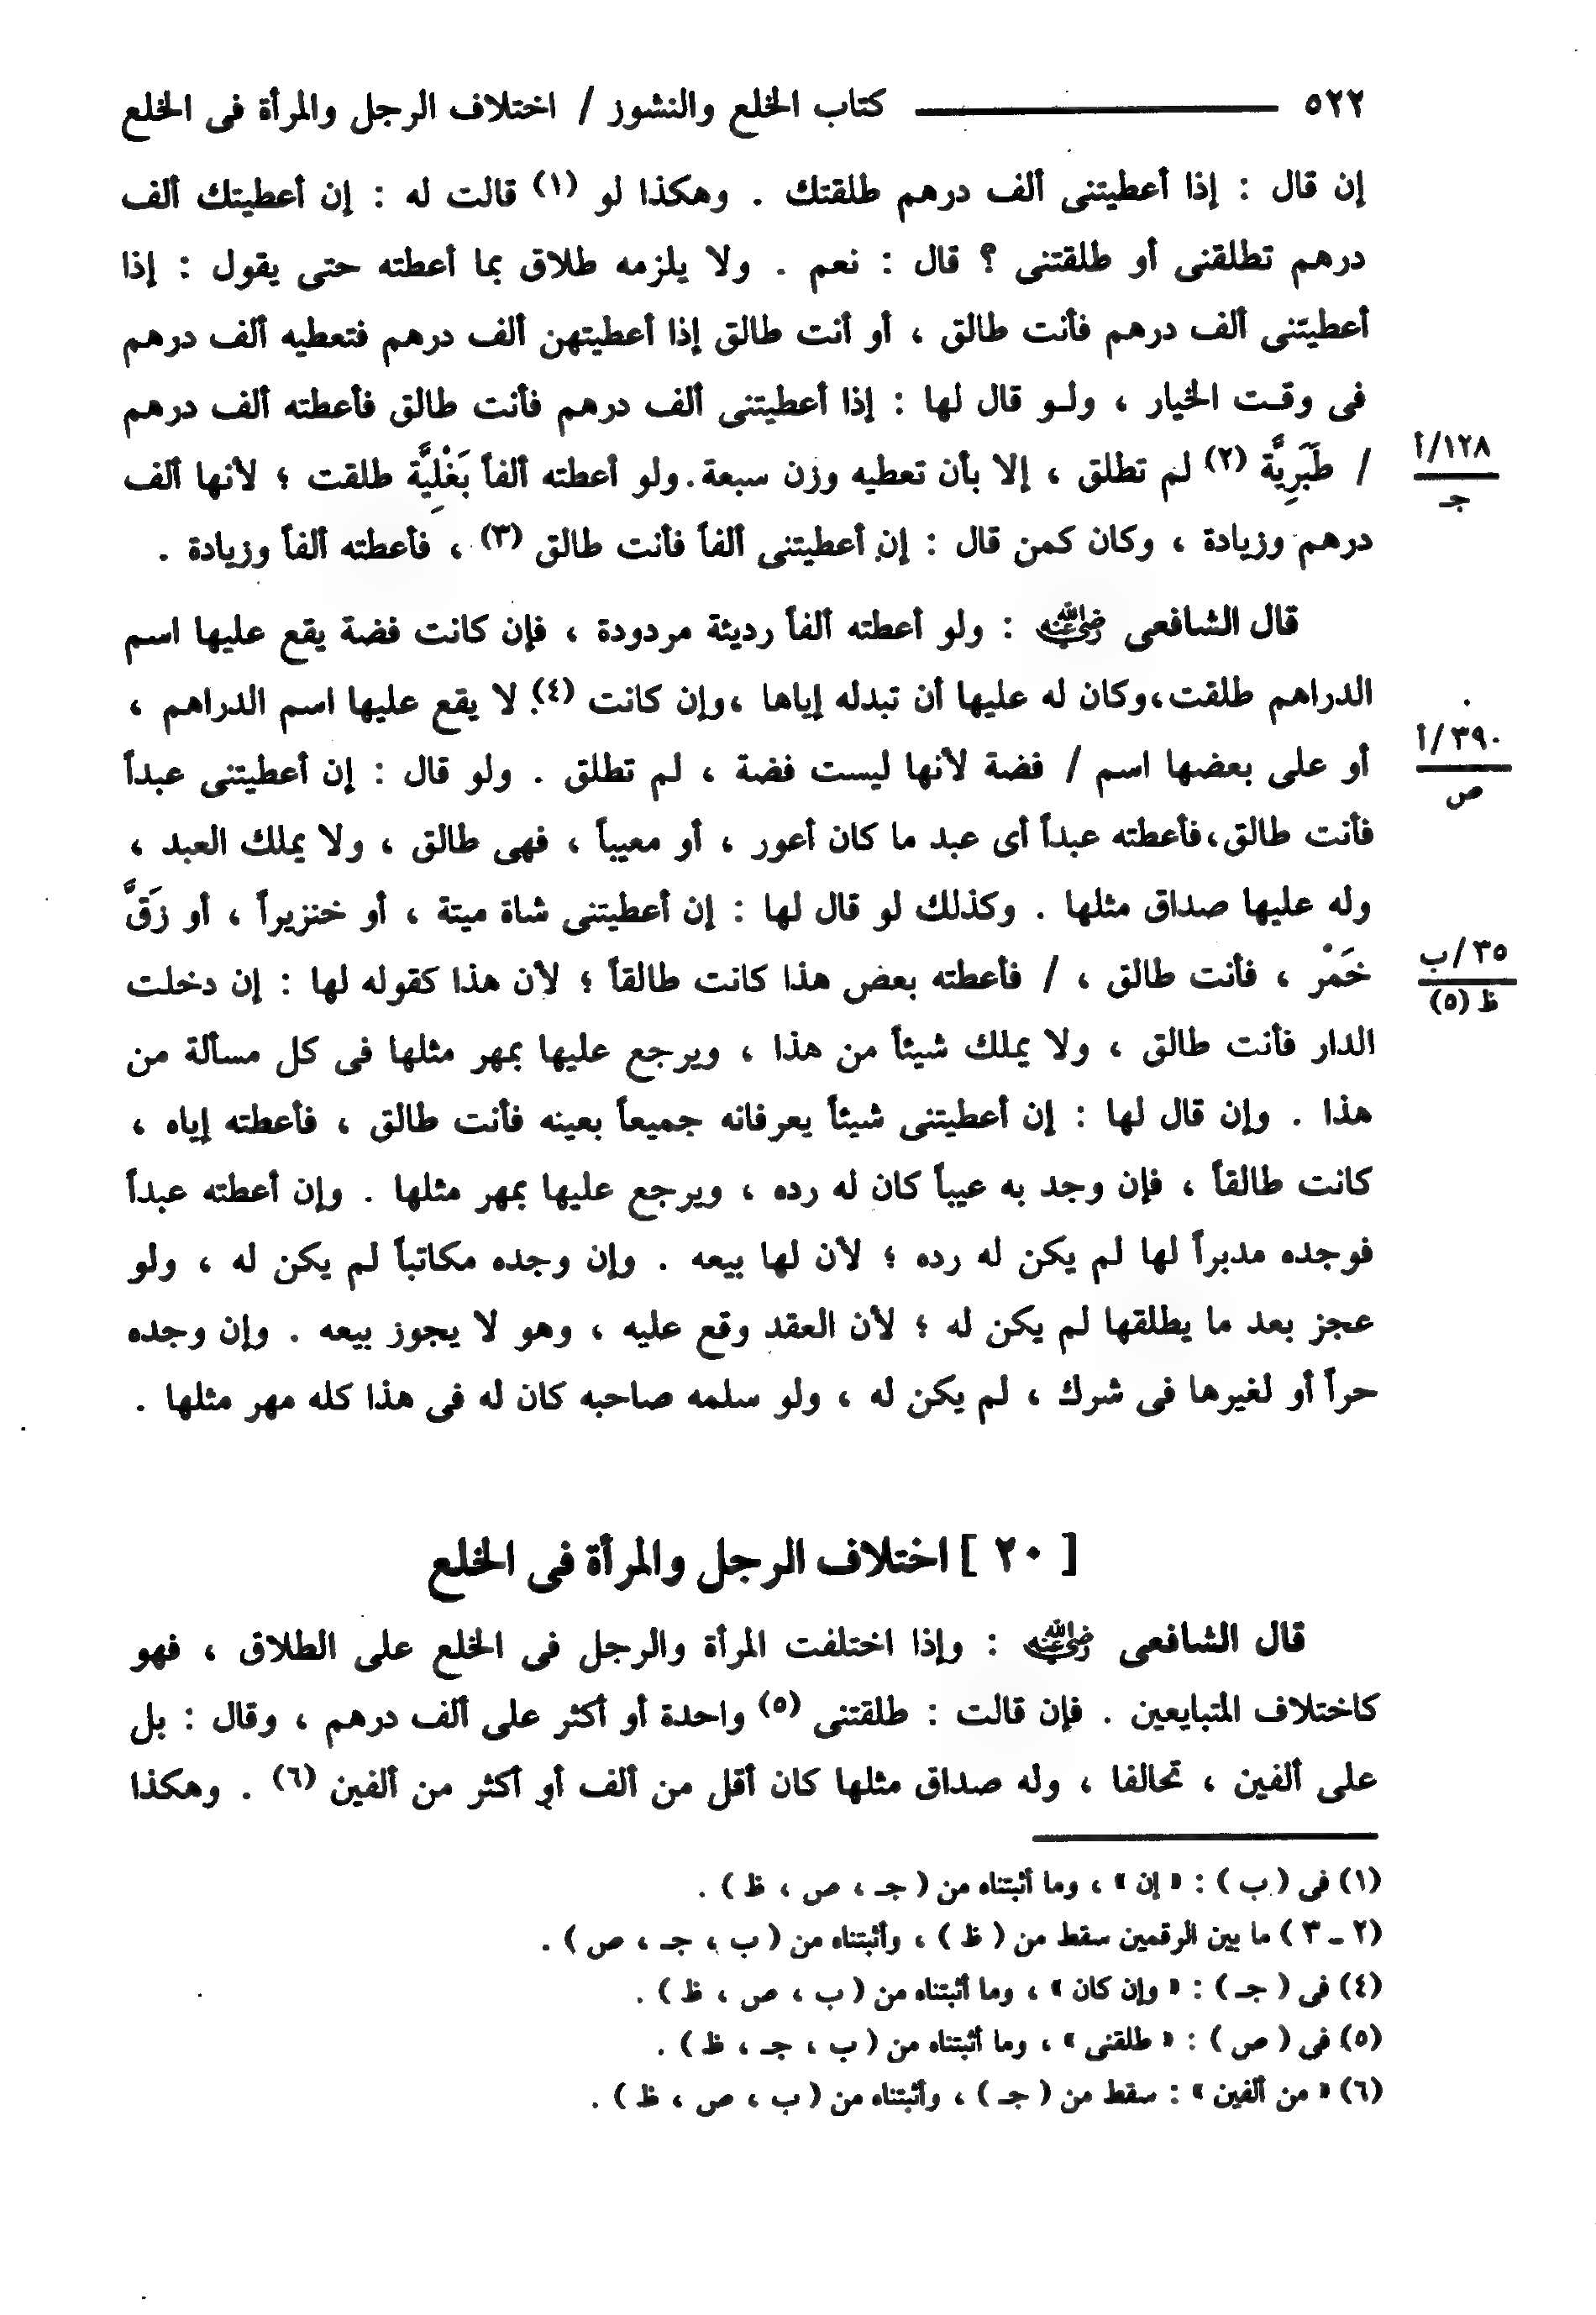 ٥٢٢ ــــــــــــ كتاب الخلع والنشوز / اختلاف الرجل والمرأة فى الخلع
إن قال : إذا أعطيتنى ألف درهم طلقتك . وهكذا لو (١) قالت له : إن أعطيتك ألف
درهم تطلقنى أو طلقتنى ؟ قال : نعم . ولا يلزمه طلاق بما أعطته حتى يقول : إذا
أعطيتنى ألف درهم فأنت طالق ، أو أنت طالق إذا أعطيتهن ألف درهم فتعطيه ألف درهم
فى وقـت الخيار ، ولـو قال لها : إذا أعطيتنى ألف درهم فأنت طالق فأعطته ألف درهم
١٢٨/أ
جـ
/ طَبَرِيَّة (٢) لم تطلق ، إلا بأن تعطيه وزن سبعة.ولو أعطته ألفاً بَغْلِيَّة طلقت ؛ لأنها ألف
درهم وزيادة ، وكان كمن قال : إن أعطيتنى ألفاً فأنت طالق (٣) ، فأعطته ألفاً وزيادة .
قال الشافعى رضي الله عنه : ولو أعطته ألفاً رديئة مردودة ، فإن كانت فضة يقع عليها اسم
الدراهم طلقت،وكان له عليها أن تبدله إياها ،وإن كانت (٤) لا يقع عليها اسم الدراهم ،
٣٩٠/أ
ص
أو على بعضها اسم / فضة لأنها ليست فضة ، لم تطلق . ولو قال : إن أعطيتنى عبداً
فأنت طالق،فأعطته عبداً أى عبد ما كان أعور ، أو معيباً ، فهى طالق ، ولا يملك العبد ،
وله عليها صداق مثلها . وكذلك لو قال لها : إن أعطيتنى شاة ميتة ، أو خنزيراً ، أو زَقَّ
٣٥/ب
ظ (٥)
خَمْر ، فأنت طالق ، / فأعطته بعض هذا كانت طالقاً ؛ لأن هذا كقوله لها : إن دخلت
الدار فأنت طالق ، ولا يملك شيئاً من هذا ، ويرجع عليها بمهر مثلها فى كل مسألة من
هذا . وإن قال لها : إن أعطيتنى شيئاً يعرفانه جميعاً بعينه فأنت طالق ، فأعطته إياه ،
كانت طالقاً ، فإن وجد به عيباً كان له رده ، ويرجع عليها بمهر مثلها . وإن أعطته عبداً
فوجده مدبراً لها لم يكن له رده ؛ لأن لها بيعه . وإن وجده مكاتباً لم يكن له ، ولو
عجز بعد ما يطلقها لم يكن له ؛ لأن العقد وقع عليه ، وهو لا يجوز بيعه . وإن وجده
حراً أو لغيرها فى شرك ، لم يكن له ، ولو سلمه صاحبه كان له فى هذا كله مهر مثلها .
[ ٢٠ ] اختلاف الرجل والمرأة فى الخلع
قال الشافعى رضي الله عنه : وإذا اختلفت المرأة والرجل فى الخلع على الطلاق ، فهو
كاختلاف المتبايعين . فإن قالت : طلقتنى (٥) واحدة أو أكثر على ألف درهم ، وقال : بل
على ألفين ، تحالفا ، وله صداق مثلها كان أقل من ألف أو أكثر من ألفين (٦) . وهكذا
(١) فى ( ب ) : « إن » ، وما أثبتناه من ( جـ ، ص ، ظ ) .
(٢ ـ ٣ ) ما بين الرقمين سقط من ( ظ ) ، وأثبتناه من ( ب ، جـ ، ص ) .
(٤) فى ( جـ ) : « وإن كان » ، وما أثبتناه من ( ب ، ص ، ظ ) .
(٥) فى ( ص ) : « طلقنى » ، وما أثبتناه من ( ب ، جـ ، ظ ) .
(٦) « من ألفين » : سقط من ( جـ ) ، وأثبتناه من ( ب ، ص ، ظ ) .